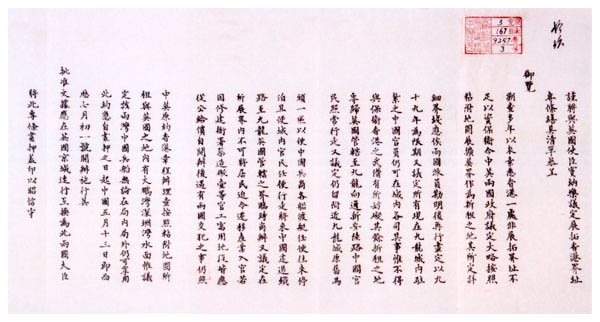 謹將與英國使臣竇納樂議定展拓香港界址
專條繕具清單恭呈
御覽
溯查多年以來素悉香港一處非展拓界址不
足以資保衛今中英兩國政府議定大略按照
粘附地圖展擴英界作為新租之地其所定詳
細界線應俟兩國派員勘明後再行畫定以九
十九年為限期又議定所有現在九龍城內駐
紮之中國官員仍可在城內各司其事惟不得
與保衛香港之武備有所妨礙其餘新租之地
專歸英國管轄至九龍向通新安陸路中國官
民照常行走又議定仍留附近九龍城原舊馬
頭一區以便中國兵商各船渡艇任便往來停
泊且便城內官民任便行走將來中國建造鐵
路至九龍英國管轄之界臨時商辦又議定在
所展界內不可將居民迫令遷移產業入官若
因修建衙署築造礮臺等官工需用地段皆應
從公給價自開辦後遇有兩國交犯之事仍照
中英原約香港章程辦理查按照粘附地圖所
租與英國之地內有大鵬灣深圳灣水面惟議
定該兩灣中國兵船無論在局內局外仍可享用
此約應自畫押之日起中國五月十三日即西
曆七月初一號開辦施行其
批准文據應在英國京城速行互換為此兩國大臣
將此專條畫押蓋印以昭信守
3
167
9257
3